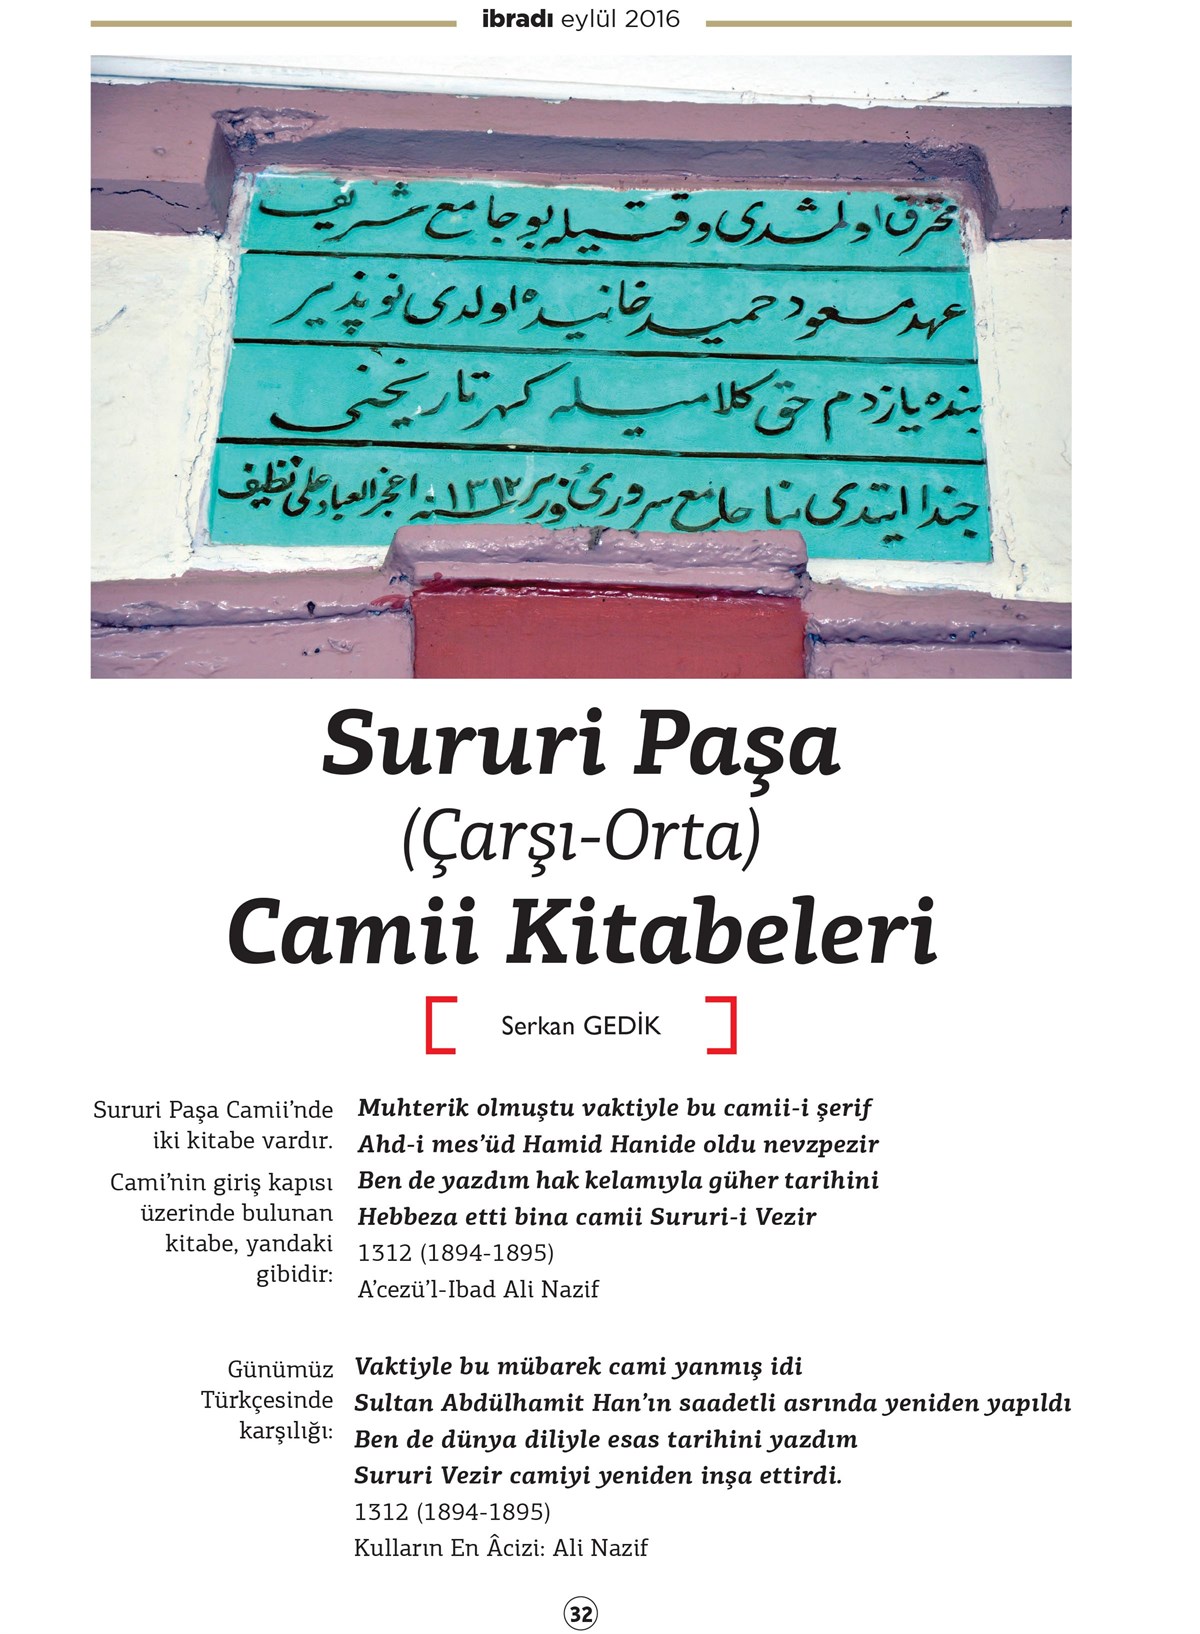 ibradı eylül 2016
محترق اولمشدی وقتیله بو جامع شریف
عهد مسعود حمید خانیده اولدی نو پذیر
بنده یازدم حق کلامیله کهر تاریخنی
حبذا ایتدی بنا جامع سروریٔ وزیر سنه ١٣١٢ اعجز العباد علی نظیف
Sururi Paşa
(Çarşı-Orta)
Camii Kitabeleri
Serkan GEDİK
Sururi Paşa Camii’nde
iki kitabe vardır.
Cami’nin giriş kapısı
üzerinde bulunan
kitabe, yandaki
gibidir:
Muhterik olmuştu vaktiyle bu camii-i şerif
Ahd-i mes’üd Hamid Hanide oldu nevzpezir
Ben de yazdım hak kelamıyla güher tarihini
Hebbeza etti bina camii Sururi-i Vezir
1312 (1894-1895)
A’cezü’l-Ibad Ali Nazif
Günümüz
Türkçesinde
karşılığı:
Vaktiyle bu mübarek cami yanmış idi
Sultan Abdülhamit Han’ın saadetli asrında yeniden yapıldı
Ben de dünya diliyle esas tarihini yazdım
Sururi Vezir camiyi yeniden inşa ettirdi.
1312 (1894-1895)
Kulların En Âcizi: Ali Nazif
32